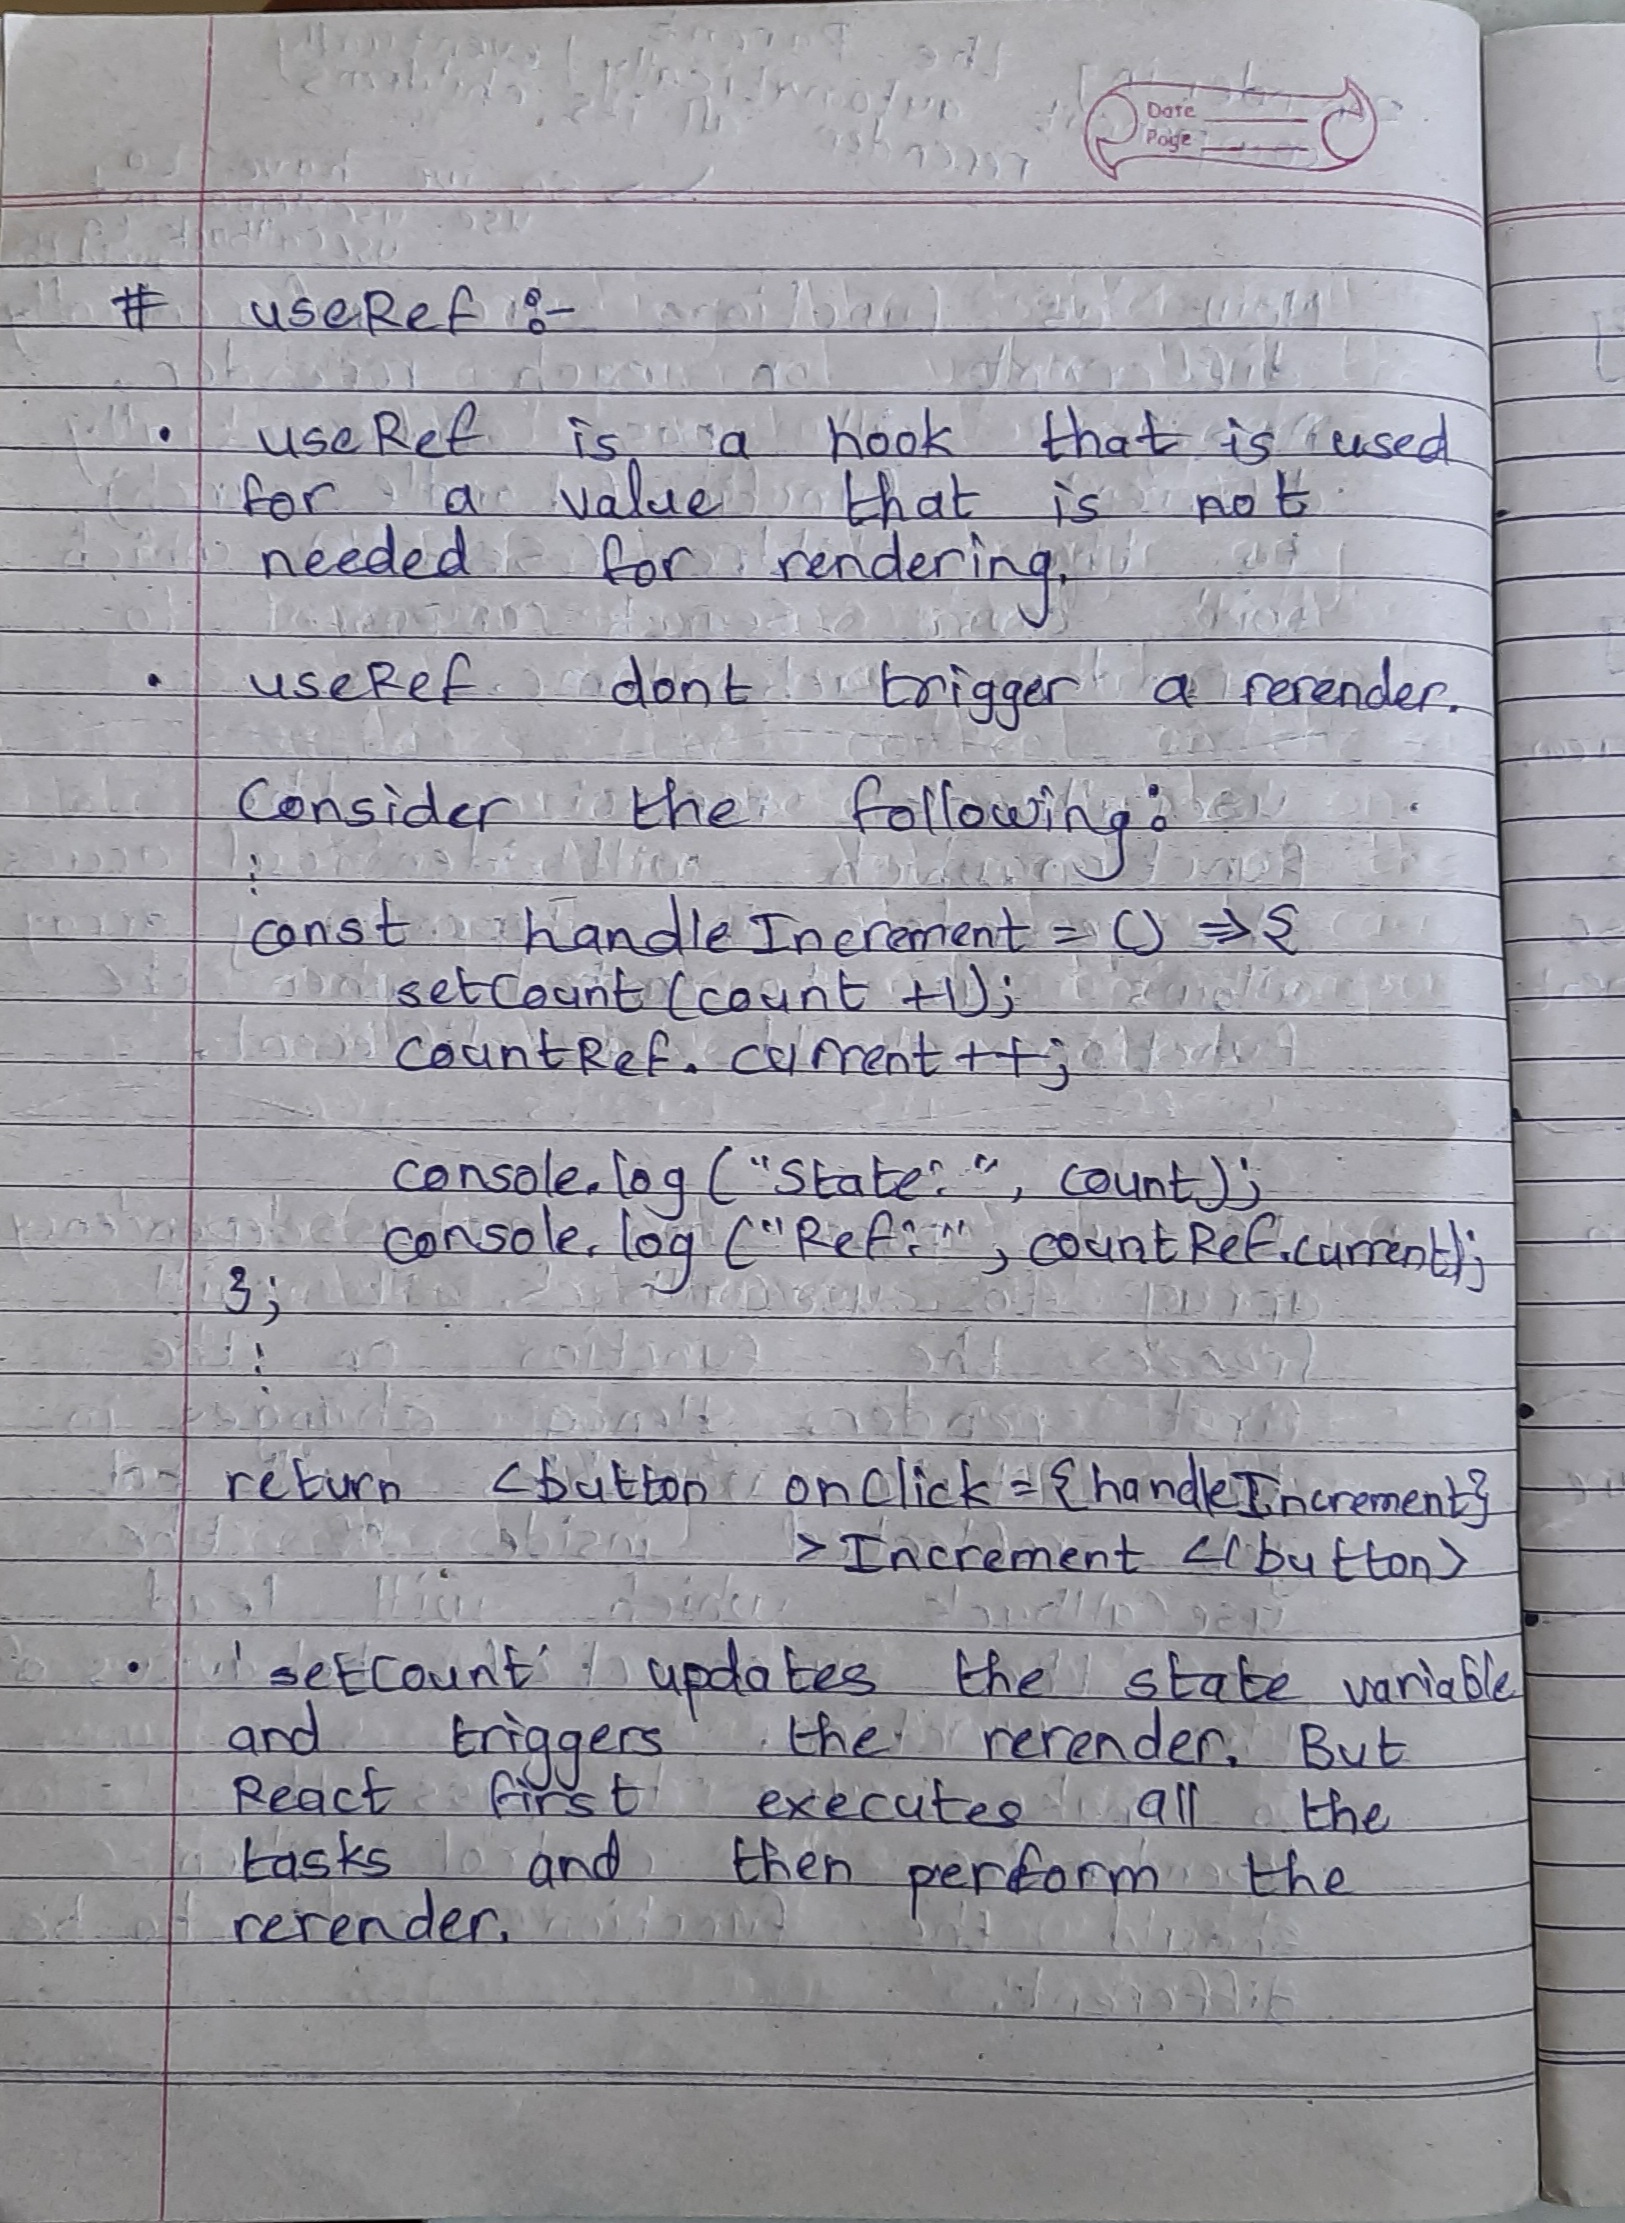 Date
Page
# useRef :-
• useRef is a hook that is used
for a value that is not
needed for rendering.
• useRef dont trigger a rerender.
Consider the following:
:
const handleIncrement = () => {
setCount (count +1);
countRef. current ++;
console.log ("State:", count);
console.log ("Ref:", countRef.current);
};
:
return <button onClick = {handleIncrement}
> Increment </button>
• 'setCount' updates the state variable
and triggers the rerender. But
React first executes all the
tasks and then perform the
rerender.